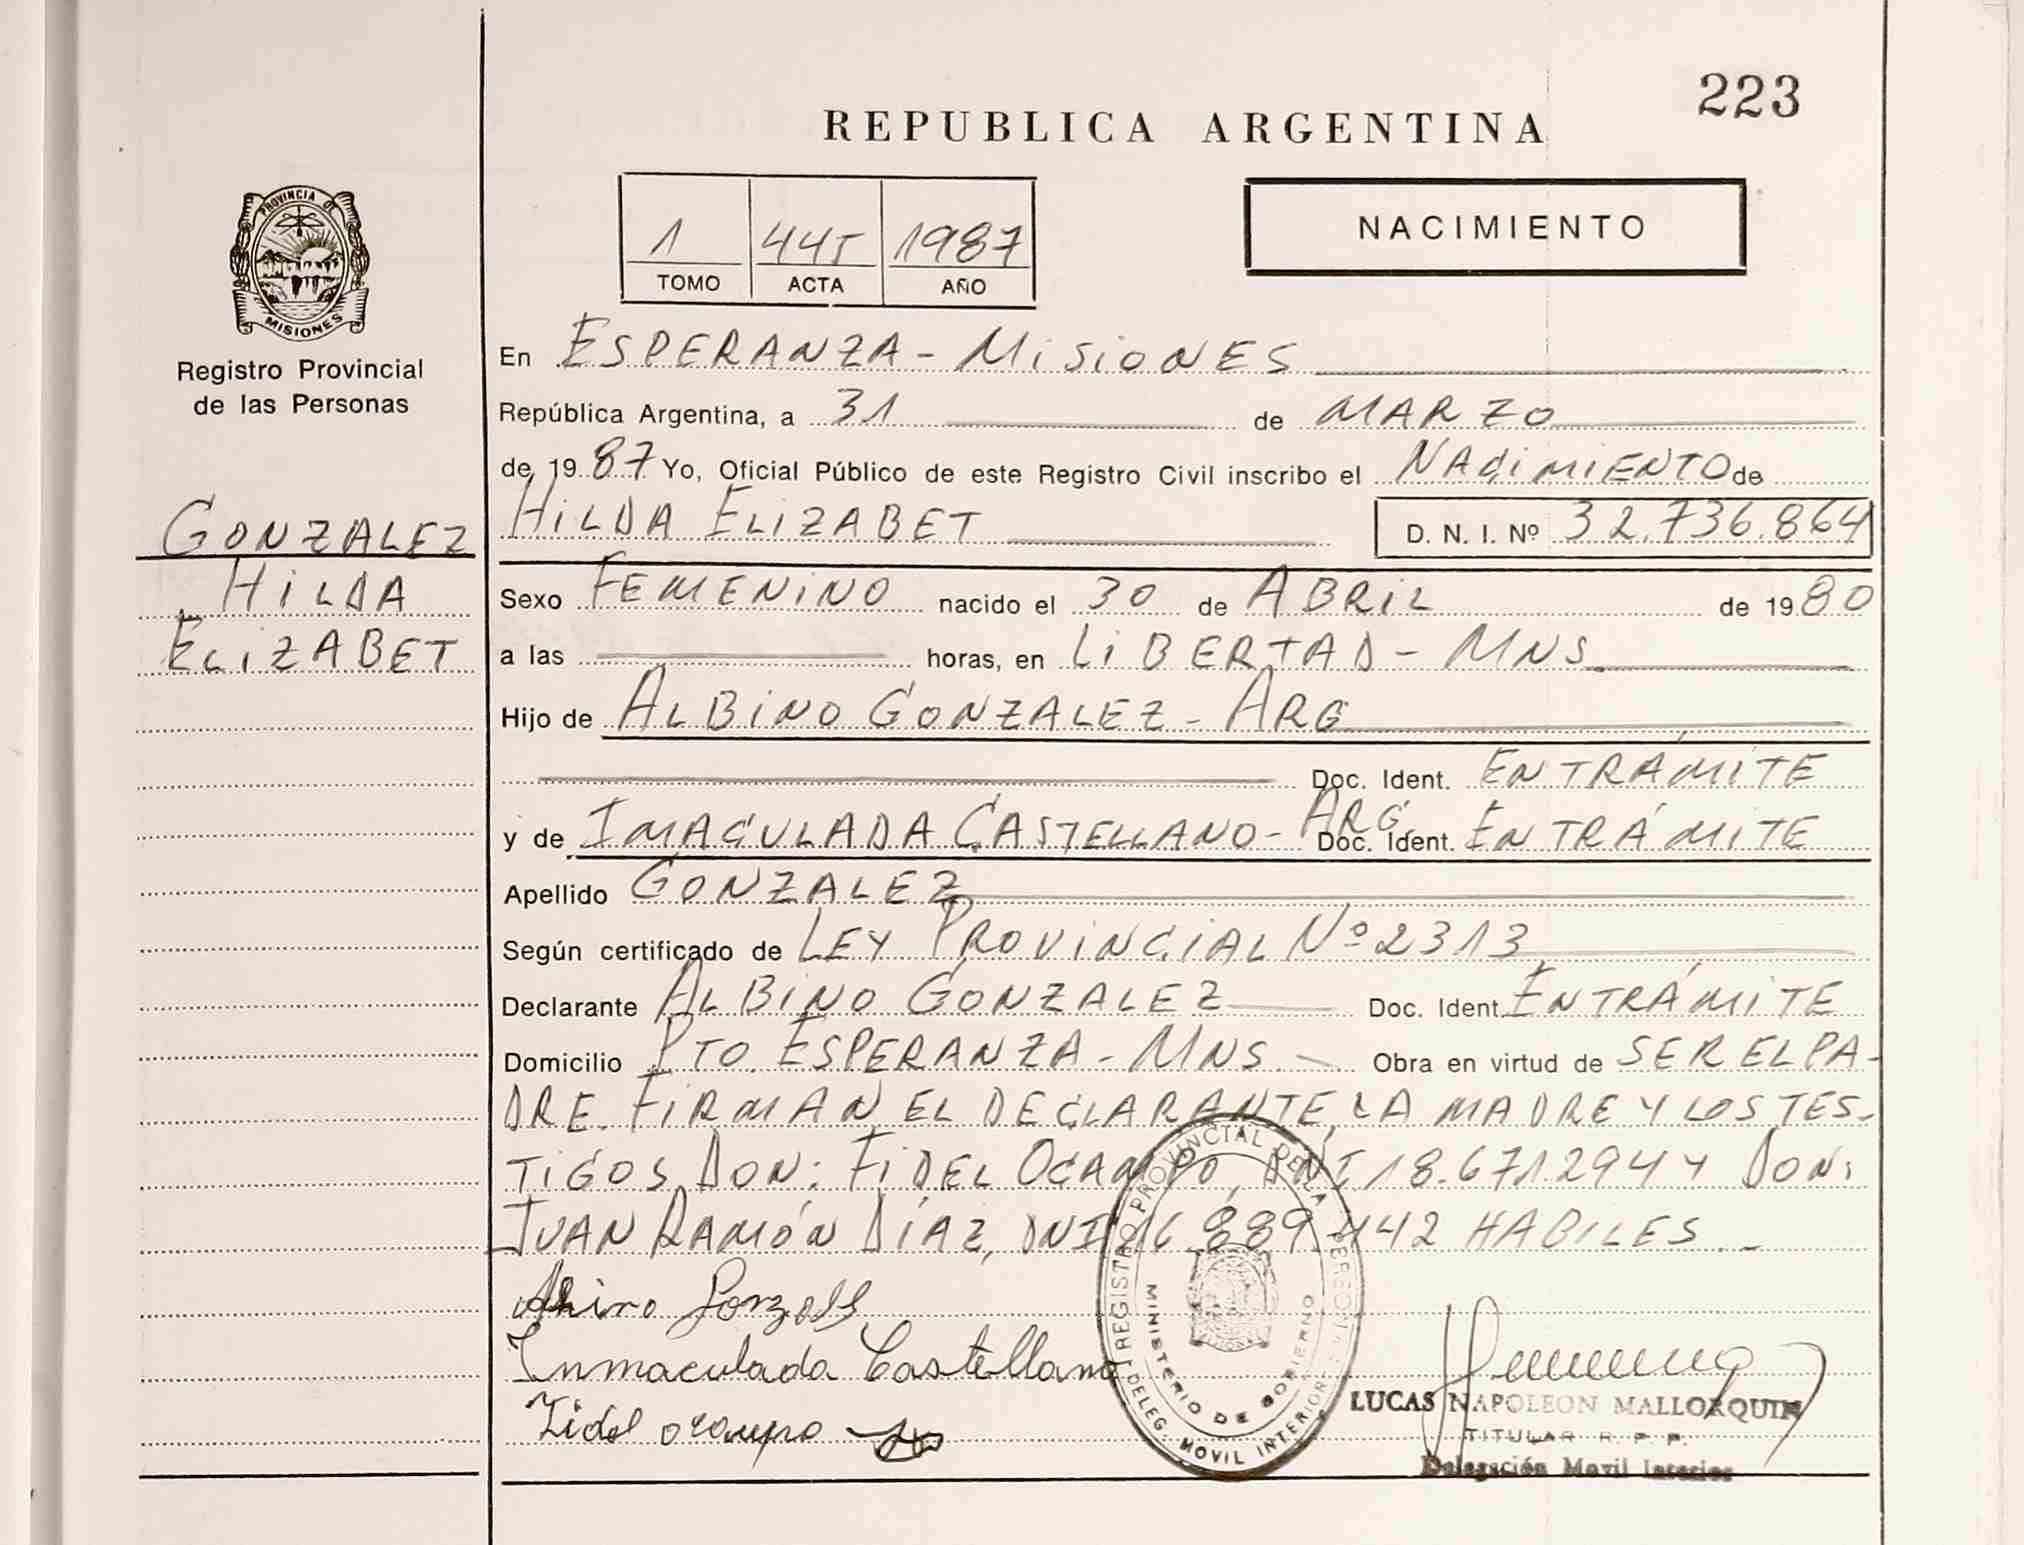 223
REPUBLICA ARGENTINA
1 445 1987
TOMO ACTA AÑO
NACIMIENTO
PROVINCIA DE
MISIONES
Registro Provincial
de las Personas
GONZALEZ
HILDA
ELIZABET
En ESPERANZA - MISIONES
República Argentina, a 31 de MARZO
de 1987 Yo, Oficial Público de este Registro Civil inscribo el NACIMIENTO de
HILDA ELIZABET D. N. I. Nº 32.736.864
Sexo FEMENINO nacido el 30 de ABRIL de 1980
a las horas, en LIBERTAD - MNS
Hijo de ALBINO GONZALEZ - ARG
Doc. Ident. EN TRÁMITE
y de IMACULADA CASTELLANO - ARG Doc. Ident. EN TRÁMITE
Apellido GONZALEZ
Según certificado de LEY PROVINCIAL Nº 2313
Declarante ALBINO GONZALEZ Doc. Ident. EN TRÁMITE
Domicilio PTO. ESPERANZA - MNS. Obra en virtud de SER EL PA-
DRE. FIRMAN EL DECLARANTE, LA MADRE Y LOS TES-
TIGOS DON: FIDEL OCAMPO, DNI 18.671.294 Y DON:
JUAN RAMÓN DÍAZ, DNI 16.889.442 HABILES. -
Inmaculada Castellano
Fidel ocampo
REGISTRO PROVINCIAL DE LA PERSONA
MINISTERIO DE GOBIERNO
DELEG. MOVIL INTERIOR
LUCAS NAPOLEON MALLORQUIN
TITULAR R. P. P.
Delegación Movil Interior